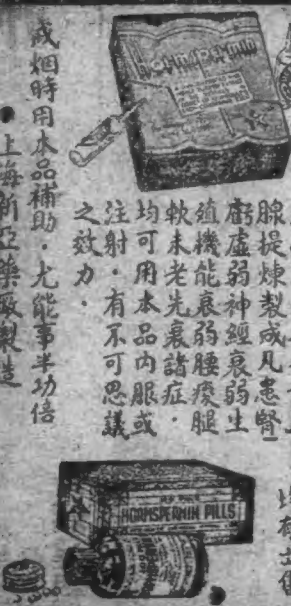 腺提煉製成凡患腎
虧虛弱神經衰弱生
殖機能衰弱腰痠腿
軟未老先衰諸症．
均可用本品內服或
注射．有不可思議
之效力．
戒烟時用本品補助．尤能事半功倍
●上海新亞藥廠製造
均有出售
HORMSPERMIN PILLS